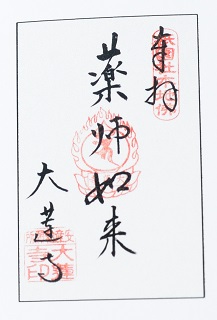 奉拝
薬师如来
大蓮寺